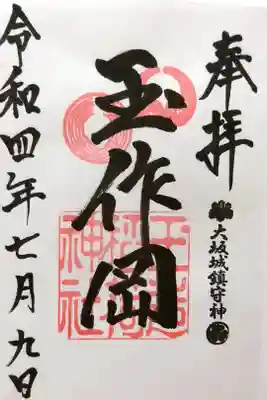 奉拝
大坂城鎮守神
玉作岡
玉造稲荷神社
令和四年七月九日